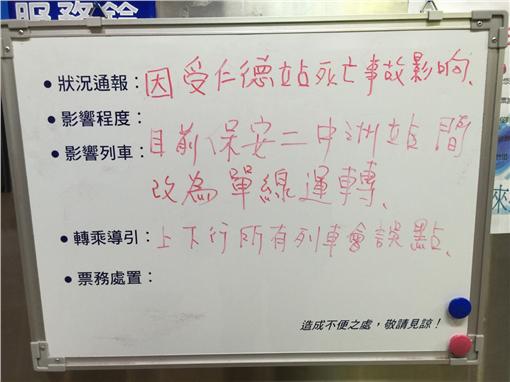 服務鈴
• 狀況通報：因受仁德站死亡事故影响、
• 影響程度：
• 影響列車：目前保安=中洲站間
改為單線運轉、
• 轉乘導引：上下行所有列車會誤點、
• 票務處置：
造成不便之處，敬請見諒！
來